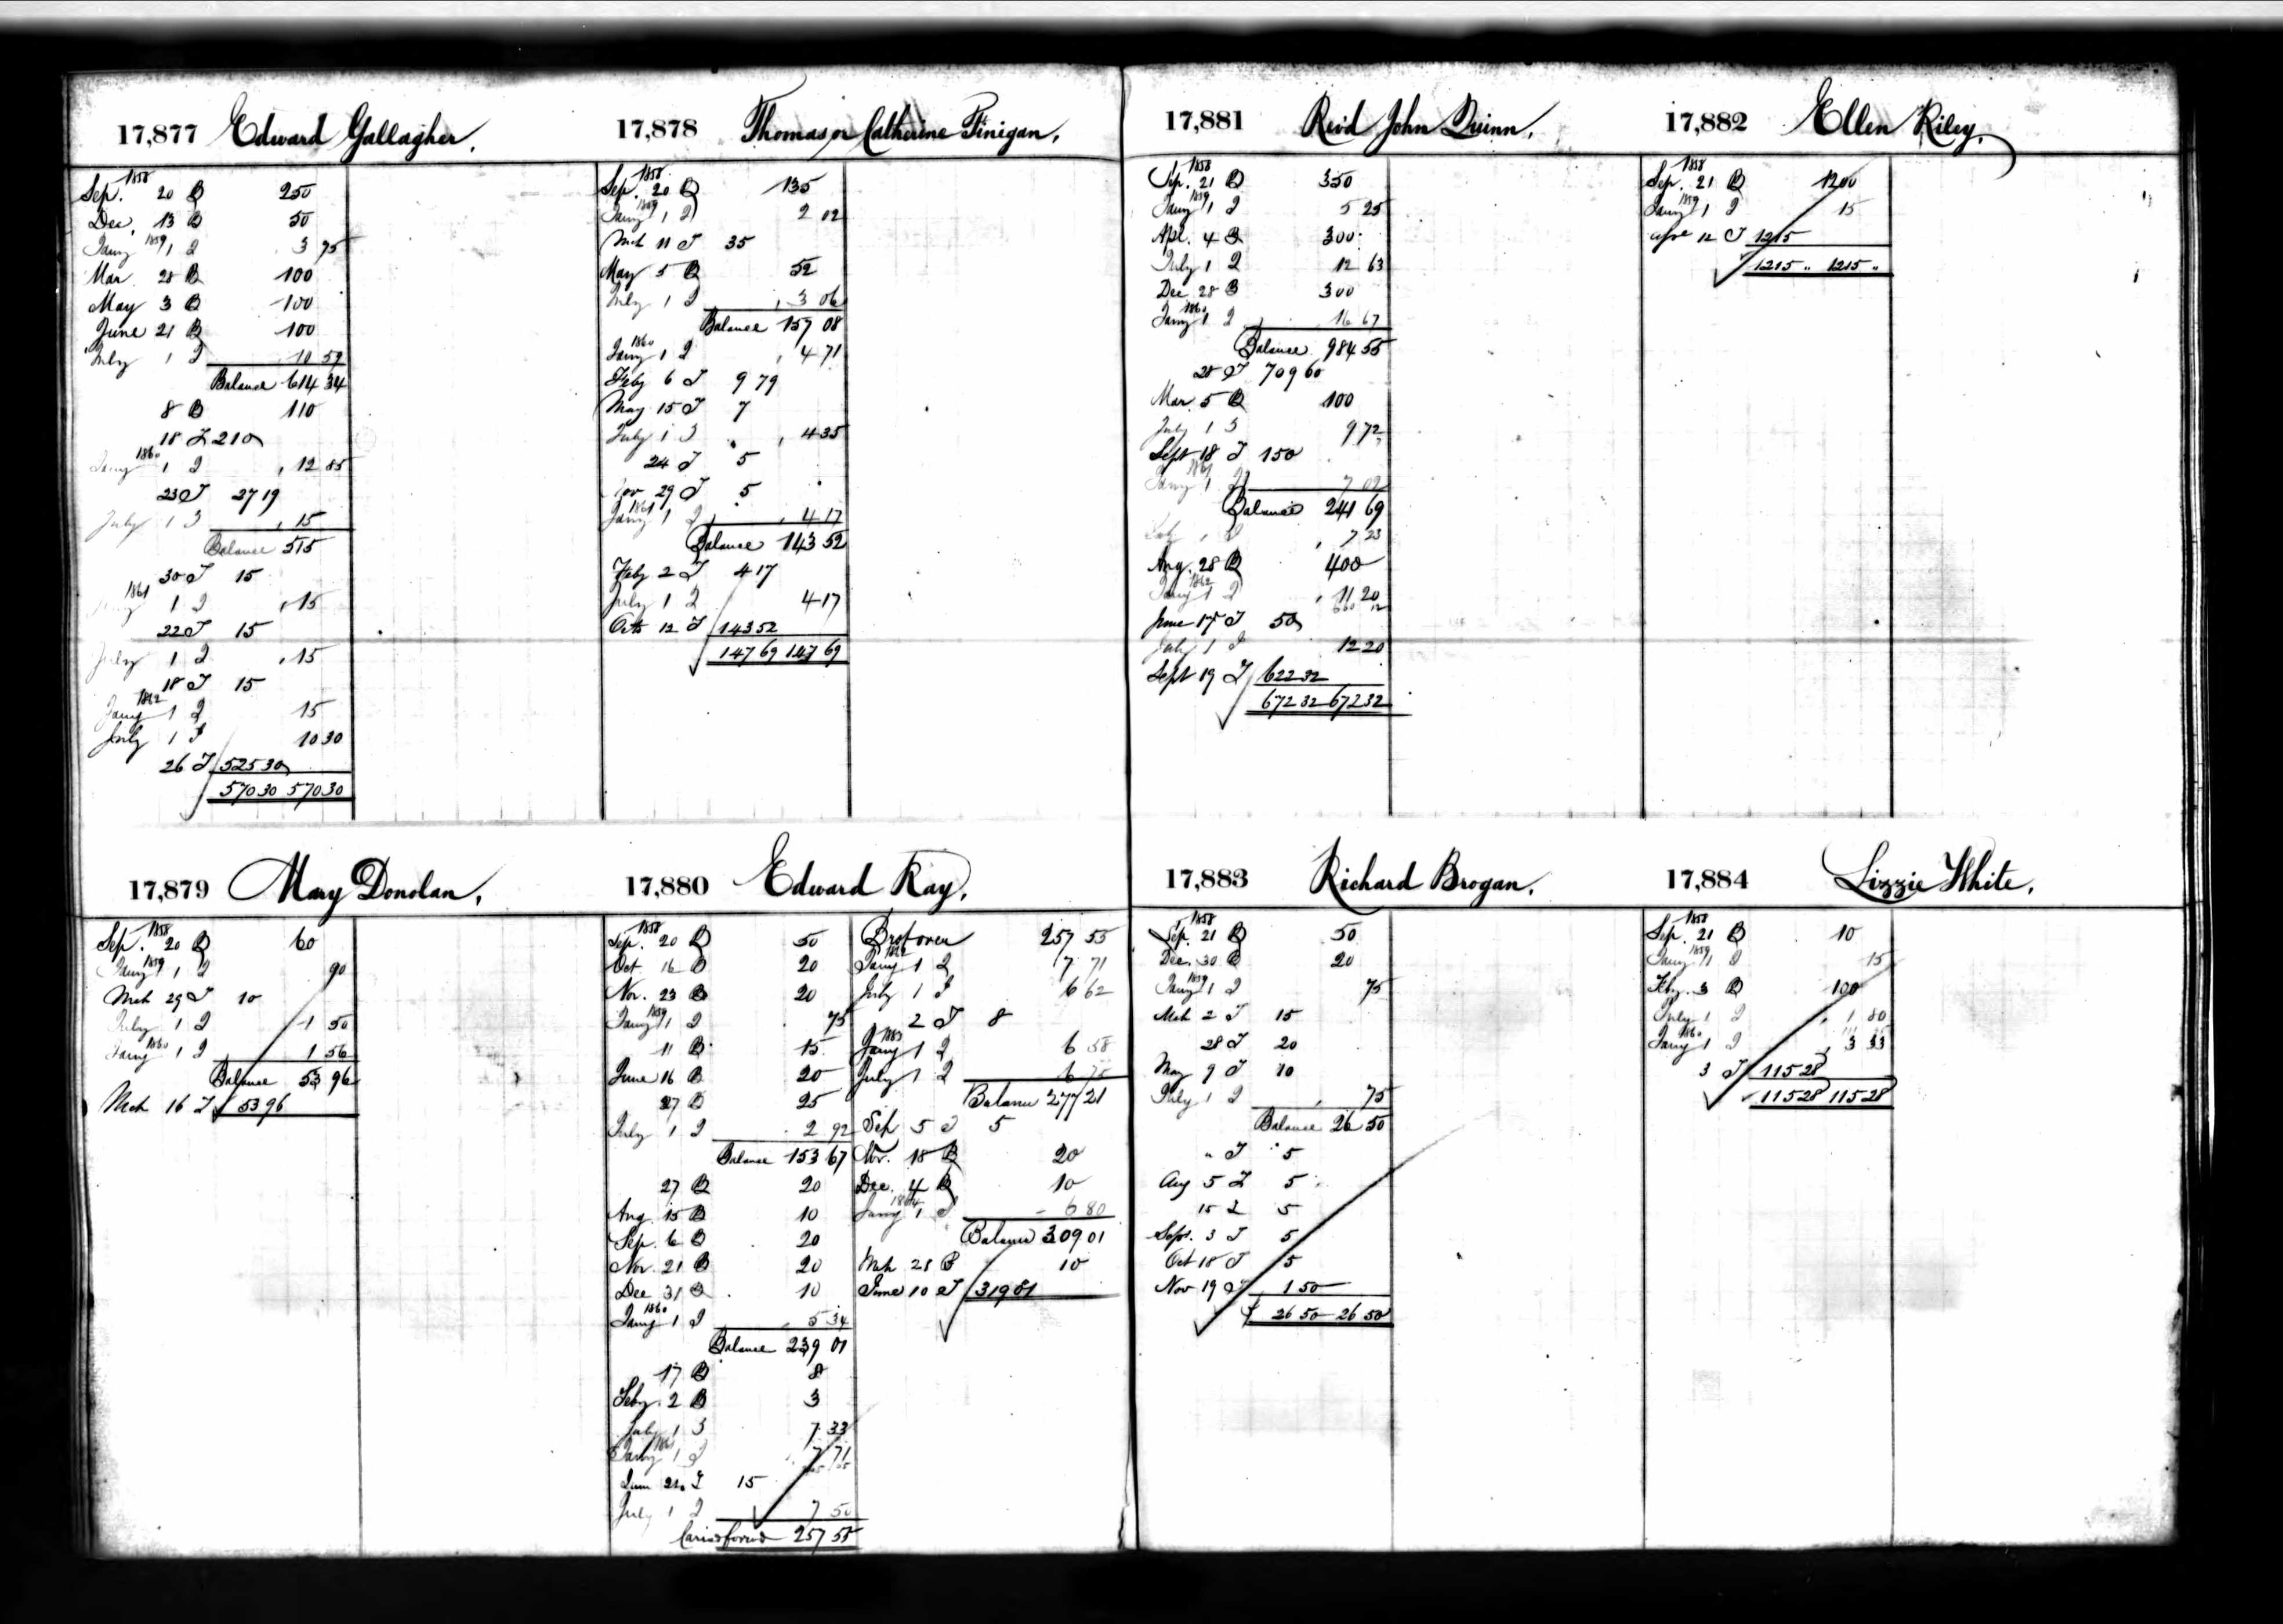 17,877 Edward Gallagher.
1858
Sep. 20 B 250
Dec. 13 B 50
Jany 1859 1 I 3 75
Mar 28 B 100
May 3 B 100
June 21 B 100
July 1 I 10 59
Balance 614 34
8 B 110
18 T 210
Jany 1860 1 I 12 85
23 T 27 19
July 1 I 15
Balance 515
30 T 15
1861 1 I 15
22 T 15
July 1 I 15
18 T 15
Jany 1862 1 I 15
July 1 I 10 30
26 T 525 30
570 30 570 30
17,878 Thomas or Catherine Finigan.
1858
Sep. 20 B 135
Jany 1859 1 I 2 02
Mch 11 T 35
May 5 B 52
July 1 I 3 06
Balance 157 08
Jany 1860 1 I 4 71
Feby 6 T 9 79
May 15 T 7
July 1 I 4 35
24 T 5
Nov 29 T 5
Jany 1861 1 I 4 17
Balance 143 52
Feby 2 T 4 17
July 1 I 4 17
Octo 12 T 143 52
147 69 147 69
17,879 Mary Donolan.
1858
Sep. 20 B 60
Jany 1859 1 I 90
Mch 29 T 10
July 1 I 1 50
Jany 1860 1 I 1 56
Balance 53 96
Mch 16 T 53 96
17,880 Edward Ray.
1858
Sep. 20 B 50
Oct 16 B 20
Nov. 23 B 20
Jany 1859 1 I 75
11 B 15
June 16 B 20
27 B 25
July 1 I 2 92
Balance 153 67
27 B 20
Aug 15 B 10
Sep. 6 B 20
Nov. 21 B 20
Dec 31 B 10
Jany 1860 1 I 5 34
Balance 239 01
17 B 8
Feby. 2 B 3
July 1 I 7 33
Jany 1861 1 I 7 71
June 21 T 15
July 1 I 7 50
Caried forwd 257 55
Brot over 257 55
Jany 1862 1 I 7 71
July 1 I 6 62
2 T 8
Jany 1863 1 I 6 58
July 1 I 6 75
Balance 277 21
Sep 5 T 5
Nov. 18 B 20
Dec. 4 B 10
Jany 1864 1 I 6 80
Balance 309 01
Mch 28 B 10
June 10 T 319 01
17,881 Revd John Quinn.
1858
Sep. 21 B 350
Jany 1859 1 I 5 25
Apl. 4 B 300
July 1 I 12 63
Dec 28 B 300
Jany 1860 1 I 16 67
Balance 984 55
28 T 709 60
Mar. 5 B 100
July 1 I 9 72
Sept 18 T 150
Jany 1861 1 I 7 02
Balance 241 69
July 1 I 7 23
Aug. 28 B 400
Jany 1862 1 I 11 20
660 12
June 17 T 50
July 1 I 12 20
Sept 19 T 622 32
672 32 672 32
17,882 Ellen Riley.
1858
Sep. 21 B 1200
Jany 1859 1 I 15
Apr 12 T 1215
1215 " 1215 "
17,883 Richard Brogan.
1858
Sep. 21 B 50
Dec. 30 B 20
Jany 1859 1 I 75
Mch 2 T 15
28 T 20
May 9 T 10
July 1 I 75
Balance 26 50
" T 5
Aug 5 T 5
15 T 5
Sept. 3 T 5
Oct 18 T 5
Nov 19 T 1 50
26 50 26 50
17,884 Lizzie White.
1858
Sep. 21 B 10
Jany 1859 1 I 15
Feby. 3 B 100
July 1 I 1 80
Jany 1860 1 I 3 33
3 T 115 28
115 28 115 28